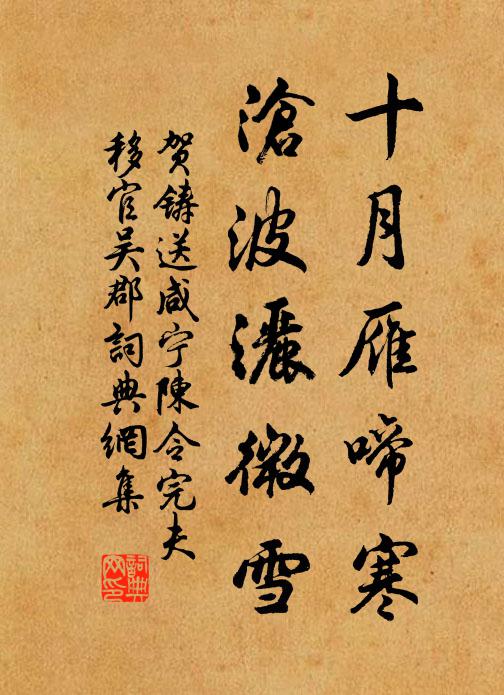 十月雁啼寒
滄波灑微雪
贺鑄送咸宁陳令完夫
移官吴郡詞典網集
詞典网印